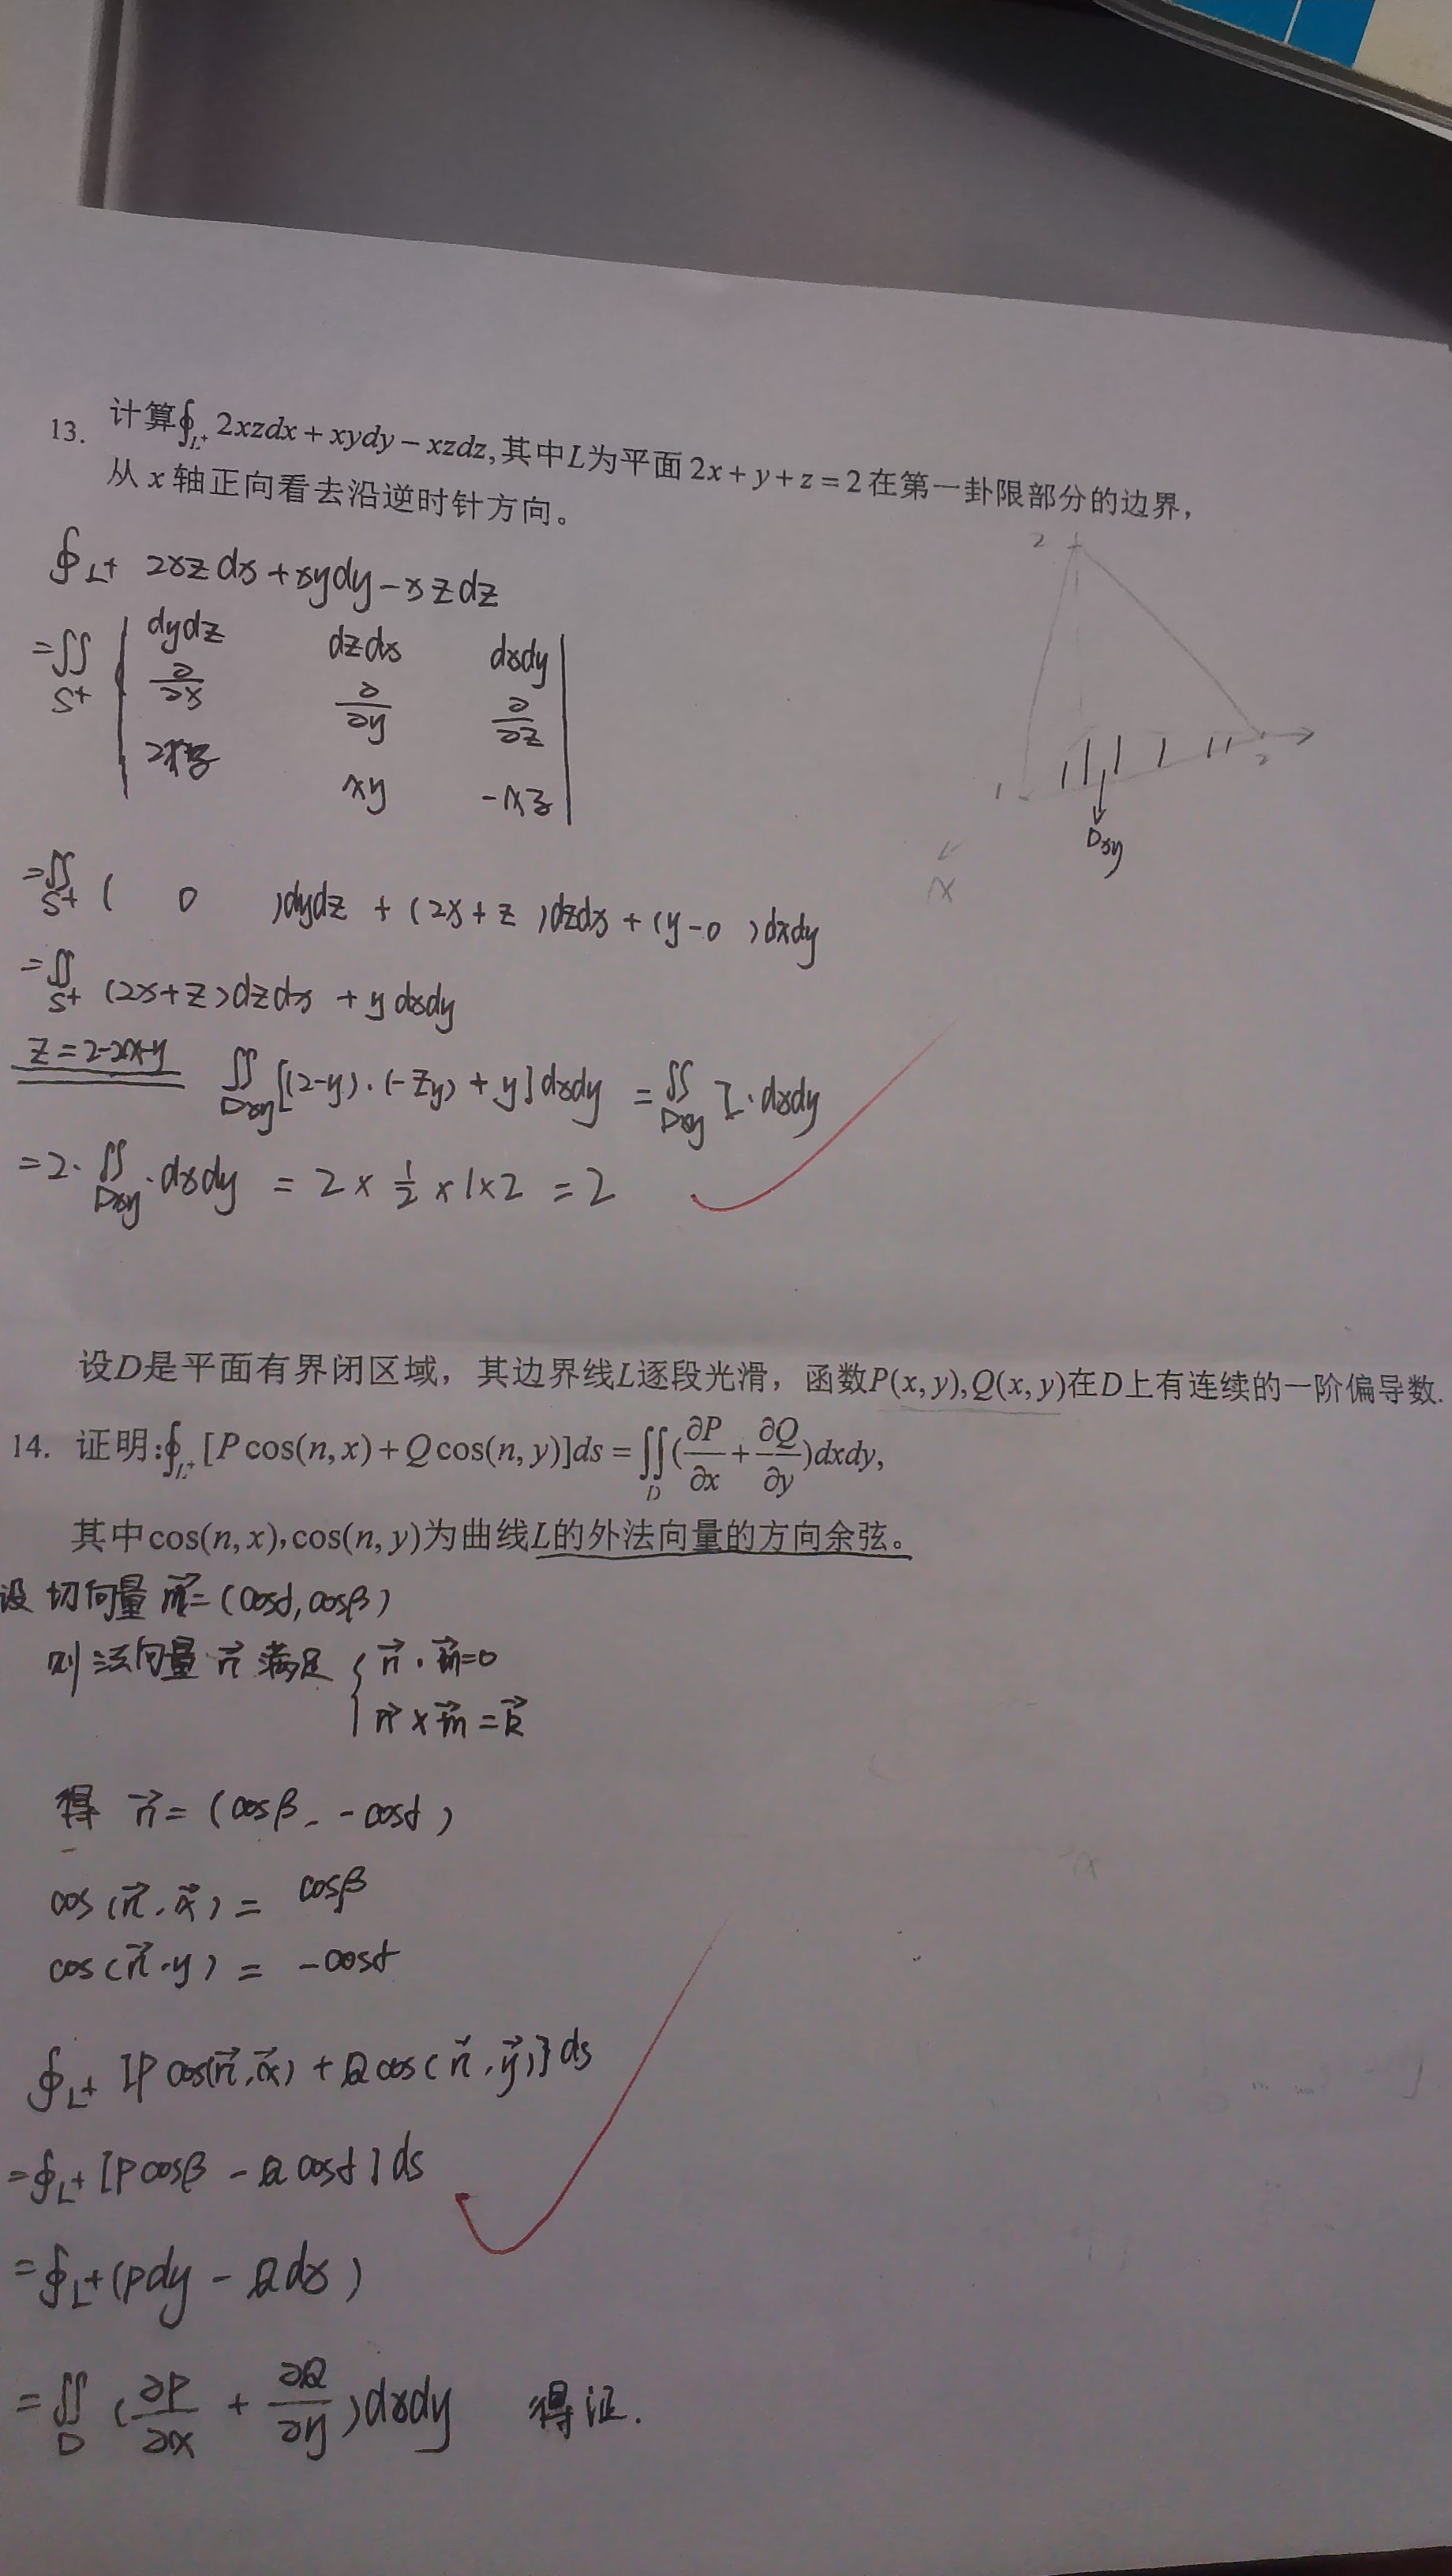 13. 计算∮_{L⁺} 2xzdx + xydy − xzdz, 其中L为平面 2x + y + z = 2 在第一卦限部分的边界，
从 x 轴正向看去沿逆时针方向。
∮_{L⁺} 2xz dx + xydy − xzdz
= ∬_{S⁺} | dydz dzdx dxdy |
| ∂/∂x ∂/∂y ∂/∂z |
| 2xz xy −xz |
= ∬_{S⁺} ( 0 )dydz + (2x + z)dzdx + (y−0)dxdy
= ∬_{S⁺} (2x+z)dzdx + y dxdy
z = 2−2x−y ∬_{Dxy} [(2−y)·(−Zy) + y] dxdy = ∬_{Dxy} 2·dxdy
= 2·∬_{Dxy}·dxdy = 2 × 1/2 × 1 × 2 = 2
2
1
2
Dxy
x
设D是平面有界闭区域，其边界线L逐段光滑，函数P(x, y), Q(x, y)在D上有连续的一阶偏导数.
14. 证明:∮_{L⁺} [P cos(n, x) + Q cos(n, y)]ds = ∬_D (∂P/∂x + ∂Q/∂y)dxdy,
其中cos(n, x), cos(n, y)为曲线L的外法向量的方向余弦。
设 切向量 m⃗ = (cosα, cosβ)
则 法向量 n⃗ 满足 { n⃗ · m⃗ = 0
n⃗ × m⃗ = k⃗
得 n⃗ = (cosβ, −cosα)
cos(n⃗, x⃗) = cosβ
cos(n⃗·y) = −cosα
∮_{L⁺} [P cos(n⃗, x⃗) + Q cos(n⃗, y⃗)] ds
= ∮_{L⁺} [P cosβ − Q cosα] ds
= ∮_{L⁺} (Pdy − Qdx)
= ∬_D (∂P/∂x + ∂Q/∂y) dxdy 得证.